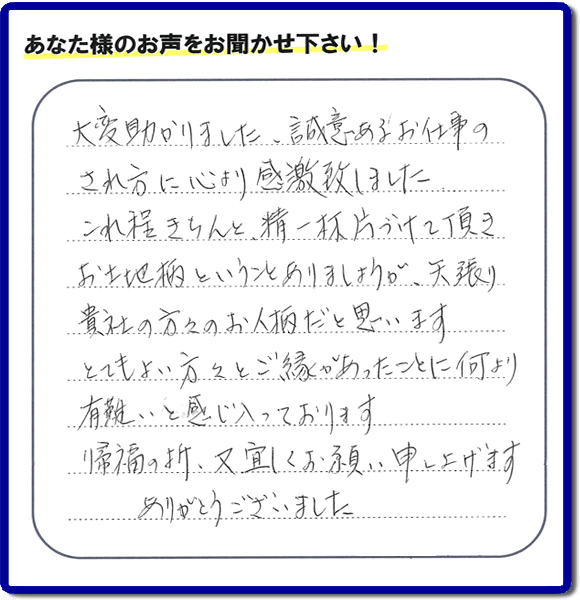 あなた様のお声をお聞かせ下さい！
大変助かりました、誠意あるお仕事の
され方に心より感激致しました
これ程きちんと、精一杯片づけて頂き
お土地柄ということありましょうが、矢張り
貴社の方々のお人柄だと思います
とてもよい方々とご縁があったことに何より
有難いと感じ入っております
帰福の折、又宜しくお願い申し上げます
ありがとうございました